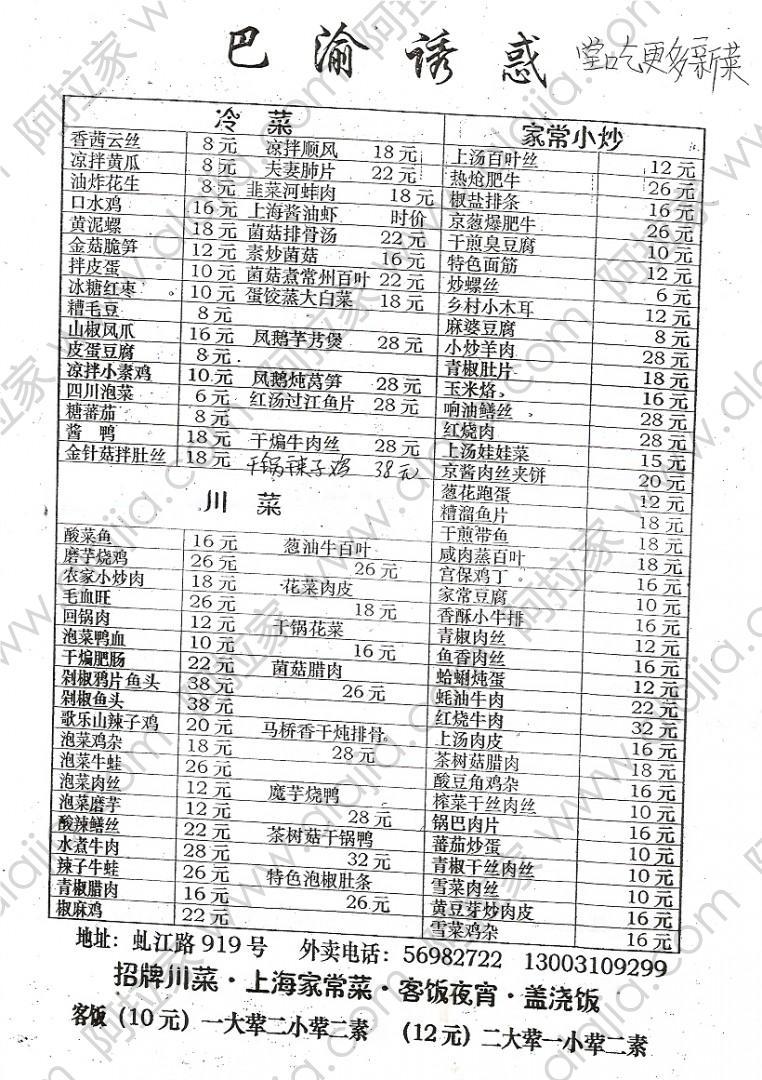 巴渝诱惑 堂吃更多新菜
冷菜
香茜云丝 8元 凉拌顺风 18元
凉拌黄瓜 8元 夫妻肺片 22元
油炸花生 8元 韭菜河蚌肉 18元
口水鸡 16元 上海酱油虾 时价
黄泥螺 18元 菌菇排骨汤 22元
金菇脆笋 12元 素炒菌菇 16元
拌皮蛋 10元 菌菇煮常州百叶 22元
冰糖红枣 10元 蛋饺蒸大白菜 18元
糟毛豆 8元
山椒凤爪 16元 凤鹅芋艿煲 28元
皮蛋豆腐 8元
凉拌小素鸡 10元 凤鹅炖莴笋 28元
四川泡菜 6元 红汤过江鱼片 28元
糖蕃茄 8元
酱鸭 18元 干煸牛肉丝 28元
金针菇拌肚丝 18元 干锅辣子鸡 38元
川菜
酸菜鱼 16元 葱油牛百叶
磨芋烧鸡 26元 26元
农家小炒肉 18元 花菜肉皮
毛血旺 26元 18元
回锅肉 12元 干锅花菜
泡菜鸭血 10元 16元
干煸肥肠 22元 菌菇腊肉
剁椒鸦片鱼头 38元 26元
剁椒鱼头 38元
歌乐山辣子鸡 20元 马桥香干炖排骨
泡菜鸡杂 18元 28元
泡菜牛蛙 26元
泡菜肉丝 12元 魔芋烧鸭
泡菜磨芋 12元 28元
酸辣鳝丝 22元 茶树菇干锅鸭
水煮牛肉 28元 32元
辣子牛蛙 26元 特色泡椒肚条
青椒腊肉 16元 26元
椒麻鸡 22元
家常小炒
上汤百叶丝 12元
热炝肥牛 26元
椒盐排条 16元
京葱爆肥牛 26元
干煎臭豆腐 10元
特色面筋 12元
炒螺丝 6元
乡村小木耳 12元
麻婆豆腐 8元
小炒羊肉 28元
青椒肚片 18元
玉米烙 16元
响油鳝丝 28元
红烧肉 28元
上汤娃娃菜 15元
京酱肉丝夹饼 20元
葱花跑蛋 12元
糟溜鱼片 18元
干煎带鱼 18元
咸肉蒸百叶 18元
宫保鸡丁 16元
家常豆腐 10元
香酥小牛排 16元
青椒肉丝 12元
鱼香肉丝 16元
蛤蜊炖蛋 12元
蚝油牛肉 22元
红烧牛肉 32元
上汤肉皮 16元
茶树菇腊肉 18元
酸豆角鸡杂 16元
榨菜干丝肉丝 10元
锅巴肉片 16元
蕃茄炒蛋 10元
青椒干丝肉丝 10元
雪菜肉丝 10元
黄豆芽炒肉皮 16元
雪菜鸡杂 16元
地址：虬江路919号 外卖电话：56982722 13003109299
招牌川菜·上海家常菜·客饭夜宵·盖浇饭
客饭（10元）一大荤二小荤二素 （12元）二大荤一小荤二素
阿拉家 www.alajia.com